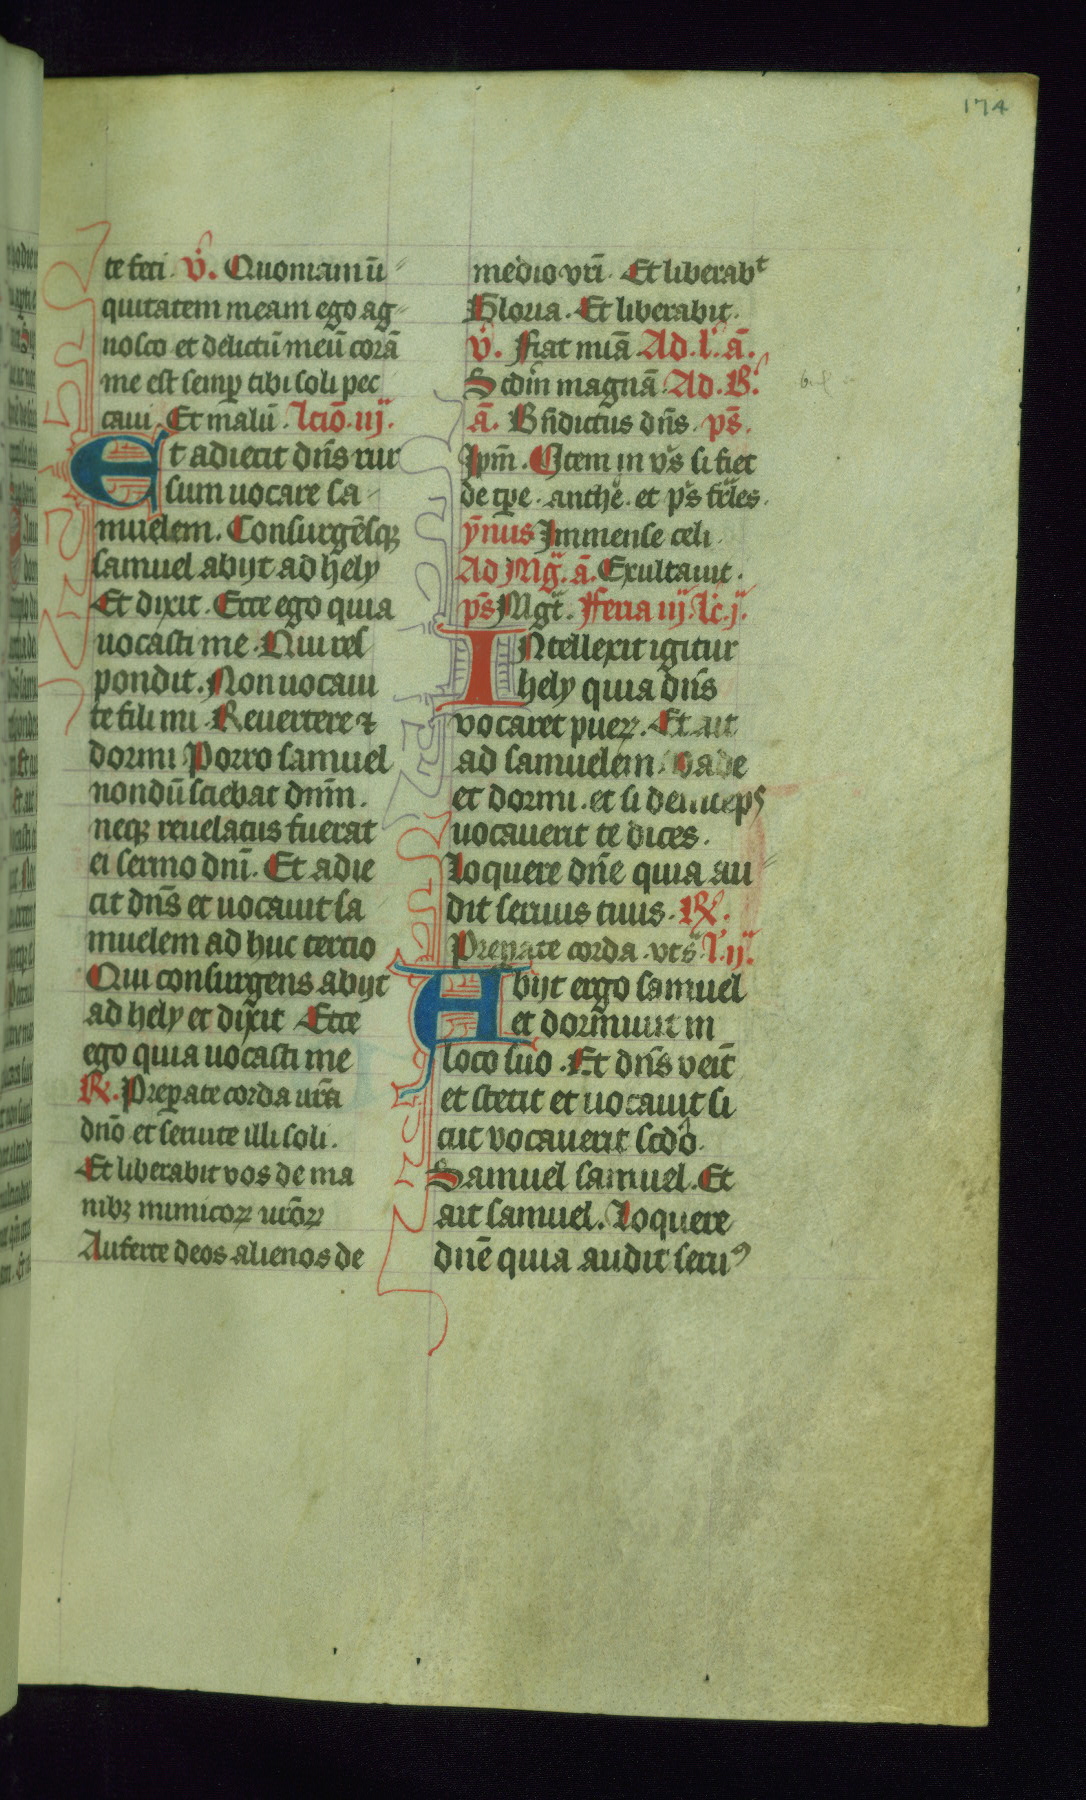 174
te feci. v̄. Quoniam ini
quitatem meam ego ag
nosco et delictū meū corā
me est semp tibi soli pec
caui. Et malū. lctiō. iij.
Et adiecit dn̄s rur
sum uocare sa
muelem. Consurgēsq;
samuel abijt ad hely
Et dixit. Ecce ego quia
uocasti me. Qui res
pondit. Non uocaui
te fili mi. Reuertere ⁊
dormi Porro samuel
nondū sciebat dn̄m.
neq; reuelatus fuerat
ei sermo dnī. Et adie
cit dn̄s et uocauit sa
muelem ad huc tercio
Qui consurgens abijt
ad hely et dixit Ecce
ego quia uocasti me
R̄. Prepate corda ur̄a
dnō et seruite illi soli.
Et liberabit vos de ma
nibꝫ inimicoꝝ urōꝝ
Auferte deos alienos de
medio vr̄i. Et liberabᵗ
Gloria. Et liberabit.
v̄. Fiat mīa Ad. l'. ā.
Scdm̄ magnā. Ad. B.
ā. Bn̄dictus dn̄s. ps̄.
Ip̄m. Item in v̄s si fiet
de tp̄e. anthē. et ps̄ fr̄les.
ȳnus Immense celi.
Ad Mḡ. ā. Exultauit.
ps̄ Mgt̄. Feria iij lc̄. j.
Intellexit igitur
hely quia dn̄s
vocaret pueꝝ. Et ait
ad samuelem. Vade
et dormi. et si deinceps
uocauerit te dices.
loquere dn̄e quia au
dit seruus tuus. R̄.
Prepate corda. vt s̄. l'. ij.
Abijt ergo samuel
et dormiuit in
loco suo. Et dn̄s veīt
et stetit et uocauit si
cut vocauerit scd̄o.
Samuel samuel. Et
ait samuel. loquere
dn̄e quia audit seruꝰ